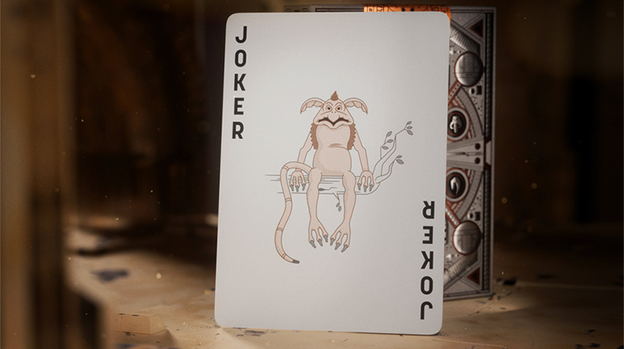 JOKER
JOKER